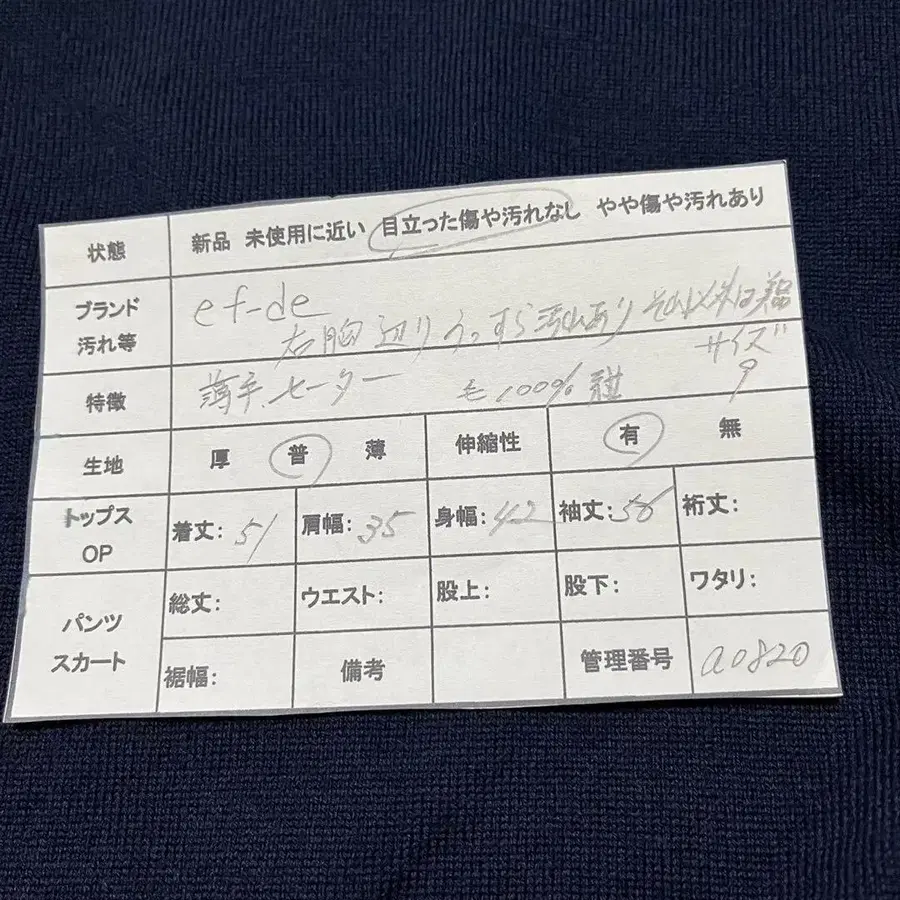 状態 新品 未使用に近い 目立った傷や汚れなし やや傷や汚れあり
ブランド ef-de
汚れ等 右胸辺りうっすら汚れあり それ以外は美品
特徴 薄手セーター 毛100% 紺 サイズ 9
生地 厚 普 薄 伸縮性 有 無
トップス OP 着丈: 51 肩幅: 35 身幅: 42 袖丈: 56 裄丈:
パンツ スカート 総丈: ウエスト: 股上: 股下: ワタリ:
裾幅: 備考 管理番号 a0820